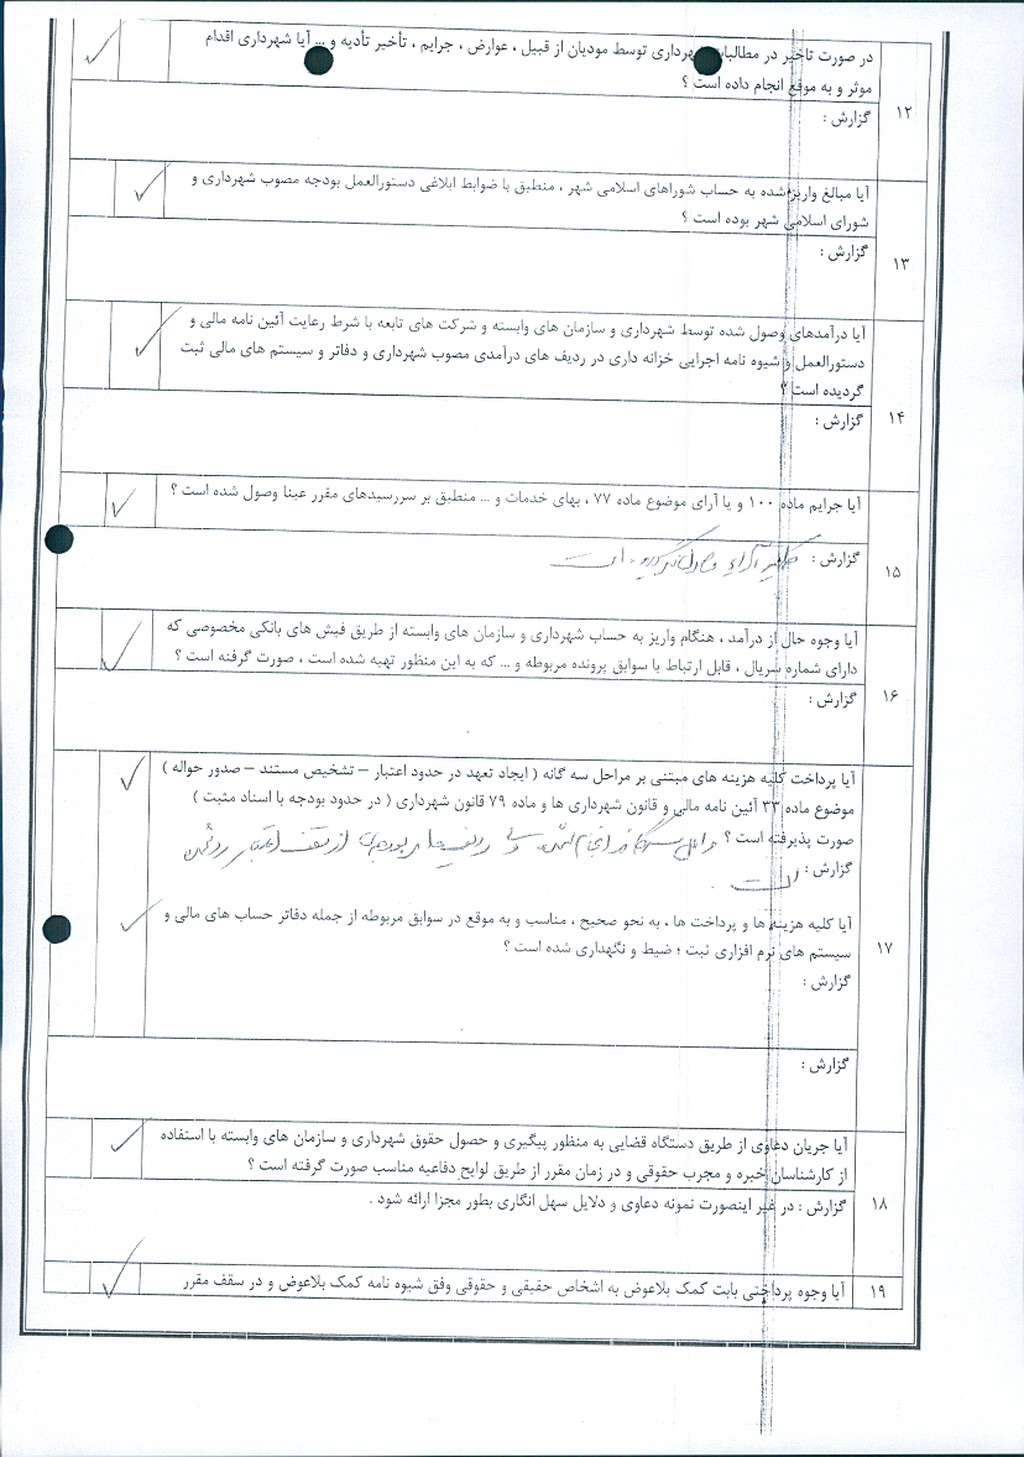 در صورت تاخیر در مطالبات شهرداری توسط مودیان از قبیل ، عوارض ، جرایم ، تأخیر تأدیه و ... آیا شهرداری اقدام
موثر و به موقع انجام داده است ؟
۱۲
گزارش :
آیا مبالغ واریز شده به حساب شوراهای اسلامی شهر ، منطبق با ضوابط ابلاغی دستورالعمل بودجه مصوب شهرداری و
شورای اسلامی شهر بوده است ؟
۱۳
گزارش :
آیا درآمدهای وصول شده توسط شهرداری و سازمان های وابسته و شرکت های تابعه با شرط رعایت آئین نامه مالی و
دستورالعمل و شیوه نامه اجرایی خزانه داری در ردیف های درآمدی مصوب شهرداری و دفاتر و سیستم های مالی ثبت
گردیده است ؟
۱۴
گزارش :
آیا جرایم ماده ۱۰۰ و یا آرای موضوع ماده ۷۷ ، بهای خدمات و ... منطبق بر سررسیدهای مقرر عینا وصول شده است ؟
۱۵
گزارش : است
آیا وجوه حال از درآمد ، هنگام واریز به حساب شهرداری و سازمان های وابسته از طریق فیش های بانکی مخصوصی که
دارای شماره سریال ، قابل ارتباط با سوابق پرونده مربوطه و ... که به این منظور تهیه شده است ، صورت گرفته است ؟
۱۶
گزارش :
آیا پرداخت کلیه هزینه های مبتنی بر مراحل سه گانه ( ایجاد تعهد در حدود اعتبار – تشخیص مستند – صدور حواله )
موضوع ماده ۳۳ آئین نامه مالی و قانون شهرداری ها و ماده ۷۹ قانون شهرداری ( در حدود بودجه با اسناد مثبت )
صورت پذیرفته است ؟ مراحل سه گانه انجام شده ولی ردیف های بودجه از سقف اعتبار رد شده
گزارش : است .
آیا کلیه هزینه ها و پرداخت ها ، به نحو صحیح ، مناسب و به موقع در سوابق مربوطه از جمله دفاتر حساب های مالی و
سیستم های نرم افزاری ثبت ؛ ضبط و نگهداری شده است ؟
۱۷
گزارش :
گزارش :
آیا جریان دعاوی از طریق دستگاه قضایی به منظور پیگیری و حصول حقوق شهرداری و سازمان های وابسته با استفاده
از کارشناسان خبره و مجرب حقوقی و در زمان مقرر از طریق لوایح دفاعیه مناسب صورت گرفته است ؟
۱۸
گزارش : در غیر اینصورت نمونه دعاوی و دلایل سهل انگاری بطور مجزا ارائه شود .
۱۹
آیا وجوه پرداختی بابت کمک بلاعوض به اشخاص حقیقی و حقوقی وفق شیوه نامه کمک بلاعوض و در سقف مقرر